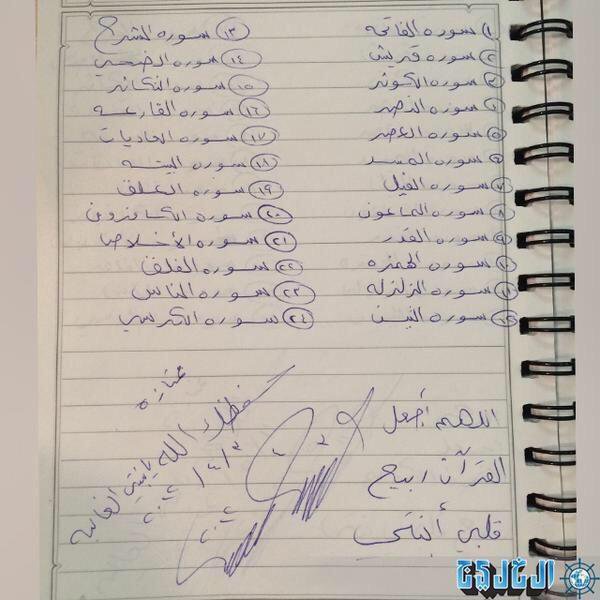 ١ سوره الفاتحه
٢ سوره قريش
٣ سوره الكوثر
٤ سوره النصر
٥ سوره العصر
٦ سوره المسد
٧ سوره الفيل
٨ سوره الماعون
٩ سوره القدر
١٠ سوره الهمزه
١١ سوره الزلزله
١٢ سوره التين
١٣ سوره الشرح
١٤ سوره الضحى
١٥ سوره التكاثر
١٦ سوره القارعه
١٧ سوره العاديات
١٨ سوره البينه
١٩ سوره العلق
٢٠ سوره الكافرون
٢١ سوره الأخلاص
٢٢ سوره الفلق
٢٣ سوره الناس
٢٤ سوره الكرسي
اللهم أجعل
القرآن ربيع
قلبي أبنتي
ممتازه
حفظك الله يا بنتي الغاليه